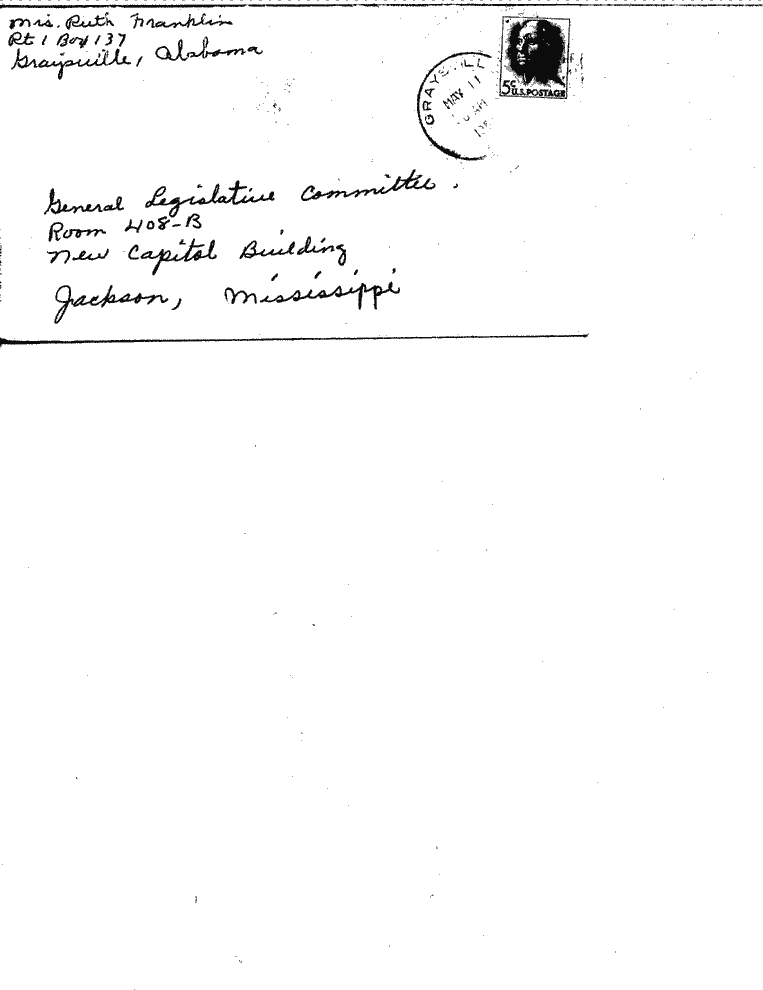 Mrs. Ruth Franklin
Rt 1 Box 137
Graysville, Alabama
GRAYSVILL
MAY 11
AM
5¢
U.S. POSTAGE
General Legislative Committee.
Room 408-B
New Capitol Building
Jackson, Mississippi